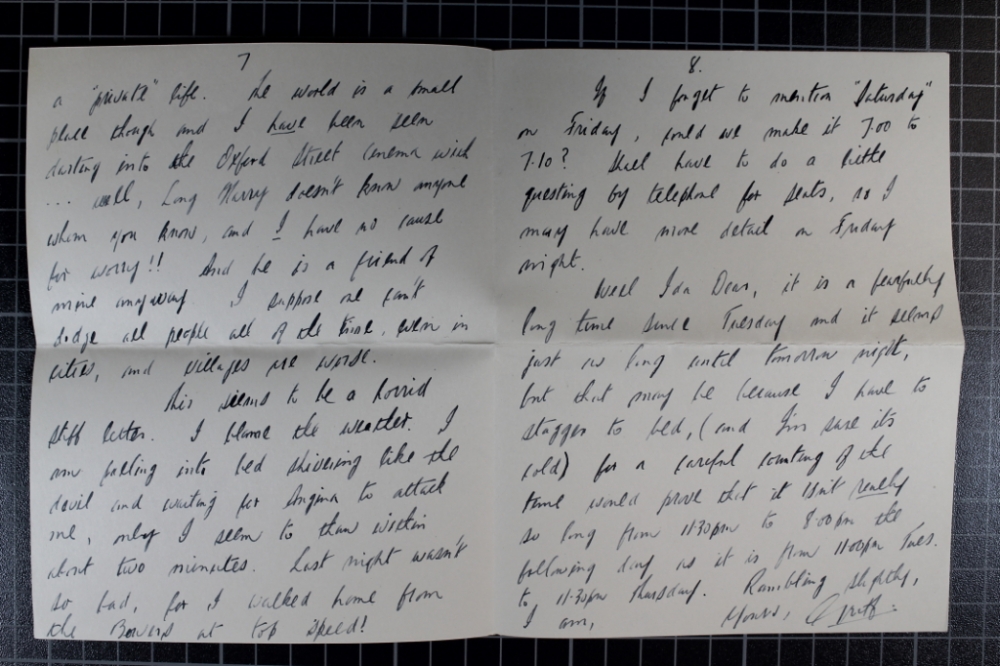 7
a "private" life. The world is a small
place though and I have been seen
darting into the Oxford Street cinema with
... well, Long Harry doesn't know anyone
whom you know, and I have no cause
for worry!! And he is a friend of
mine anyway. I suppose one can't
dodge all people all of the time, even in
cities, and villages are worse.
This seems to be a horrid
stiff letter. I blame the weather. I
am falling into bed shivering like the
devil and waiting for Angina to attack
me, only I seem to thaw within
about two minutes. Last night wasn't
so bad, for I walked home from
the Bowers at top speed!
8.
If I forget to mention "Saturday"
on Friday, could we make it 7.00 to
7.10? Shall have to do a little
questing by telephone for seats, so I
may have more detail on Friday
night.
Well Ida Dear, it is a fearfully
long time since Tuesday and it seems
just as long until tomorrow night,
but that may be because I have to
stagger to bed, (and I'm sure its
cold) for a careful counting of the
time would prove that it isn't really
so long from 11.30pm to 8.00pm the
following day as it is from 11.00pm Tues.
to 11.30pm Thursday. Rambling slightly,
I am, Yours,